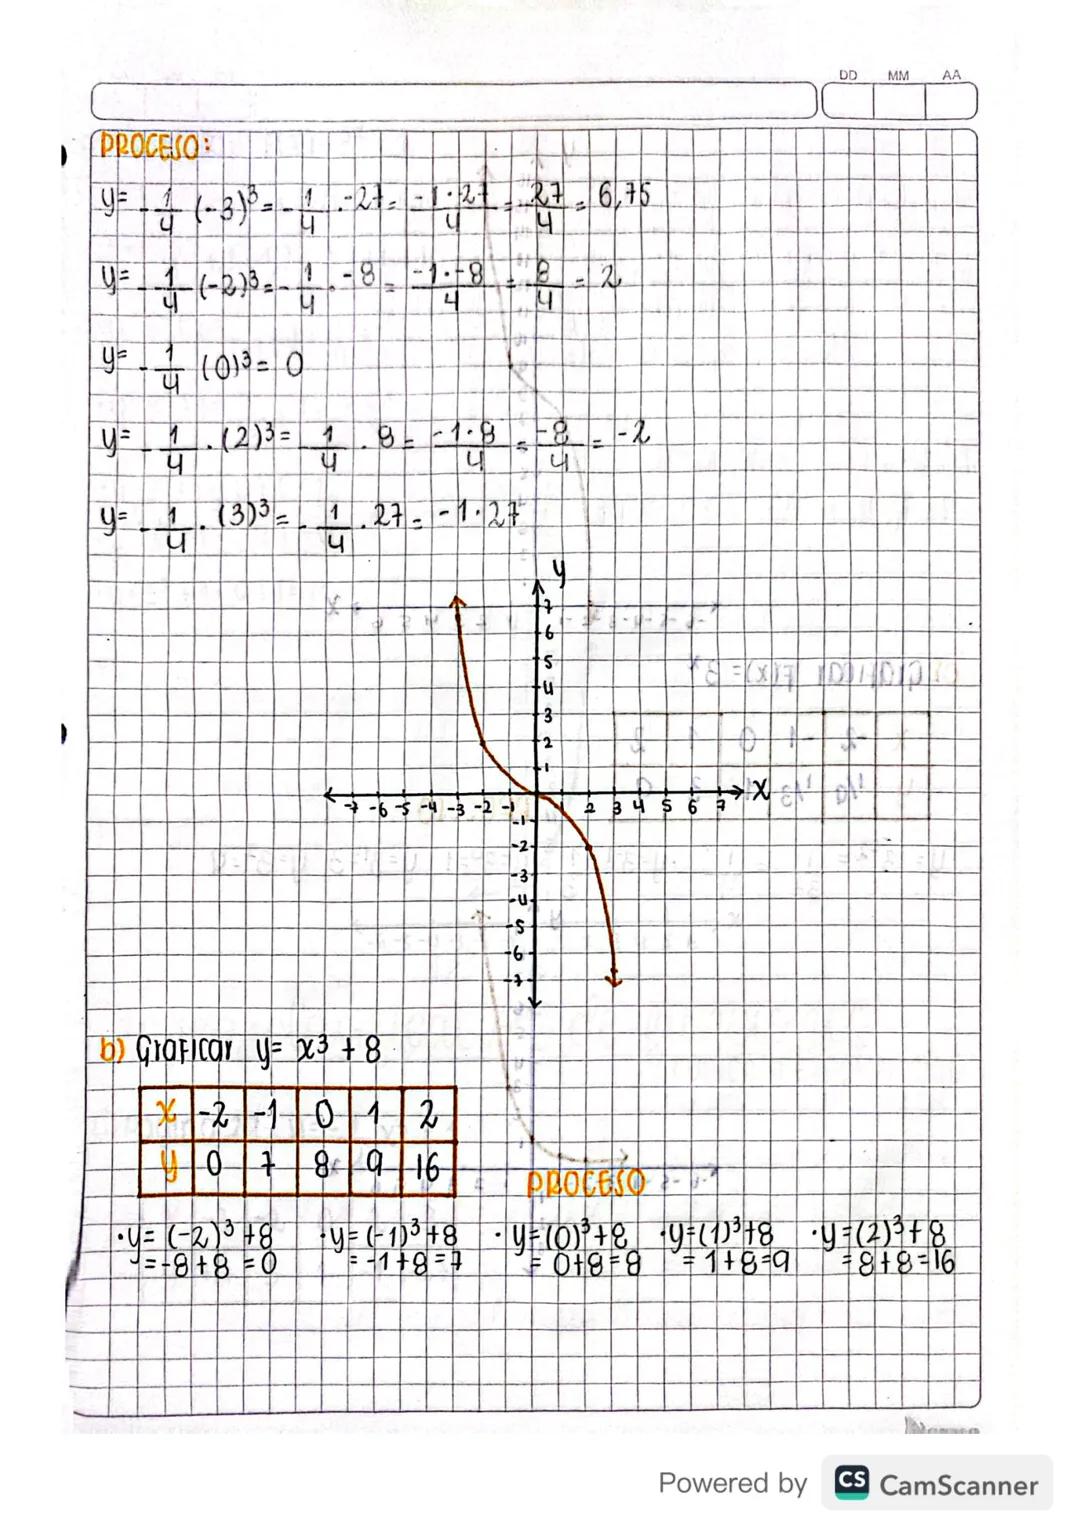 DD MM AA
PROCESO:
y= -1/4 (-3)³ = -1/4 · -27 = -1·-27/4 = 27/4 = 6,75
y= -1/4 (-2)³ = -1/4 · -8 = -1·-8/4 = 8/4 = 2
y= -1/4 (0)³ = 0
y= -1/4 · (2)³ = -1/4 · 8 = -1·8/4 = -8/4 = -2
y= -1/4 · (3)³ = -1/4 · 27 = -1·27
y
7
6
5
4
3
2
1
-7 -6 -5 -4 -3 -2 -1 2 3 4 5 6 7 x
-1
-2
-3
-4
-5
-6
-7
b) Graficar y= x³ + 8
x -2 -1 0 1 2
y 0 7 8 9 16
PROCESO
·y= (-2)³ +8 ·y= (-1)³+8 ·y=(0)³+8 ·y=(1)³+8 ·y=(2)³+8
=-8+8 =0 =-1+8=7 = 0+8=8 = 1+8=9 =8+8=16
Powered by CS CamScanner